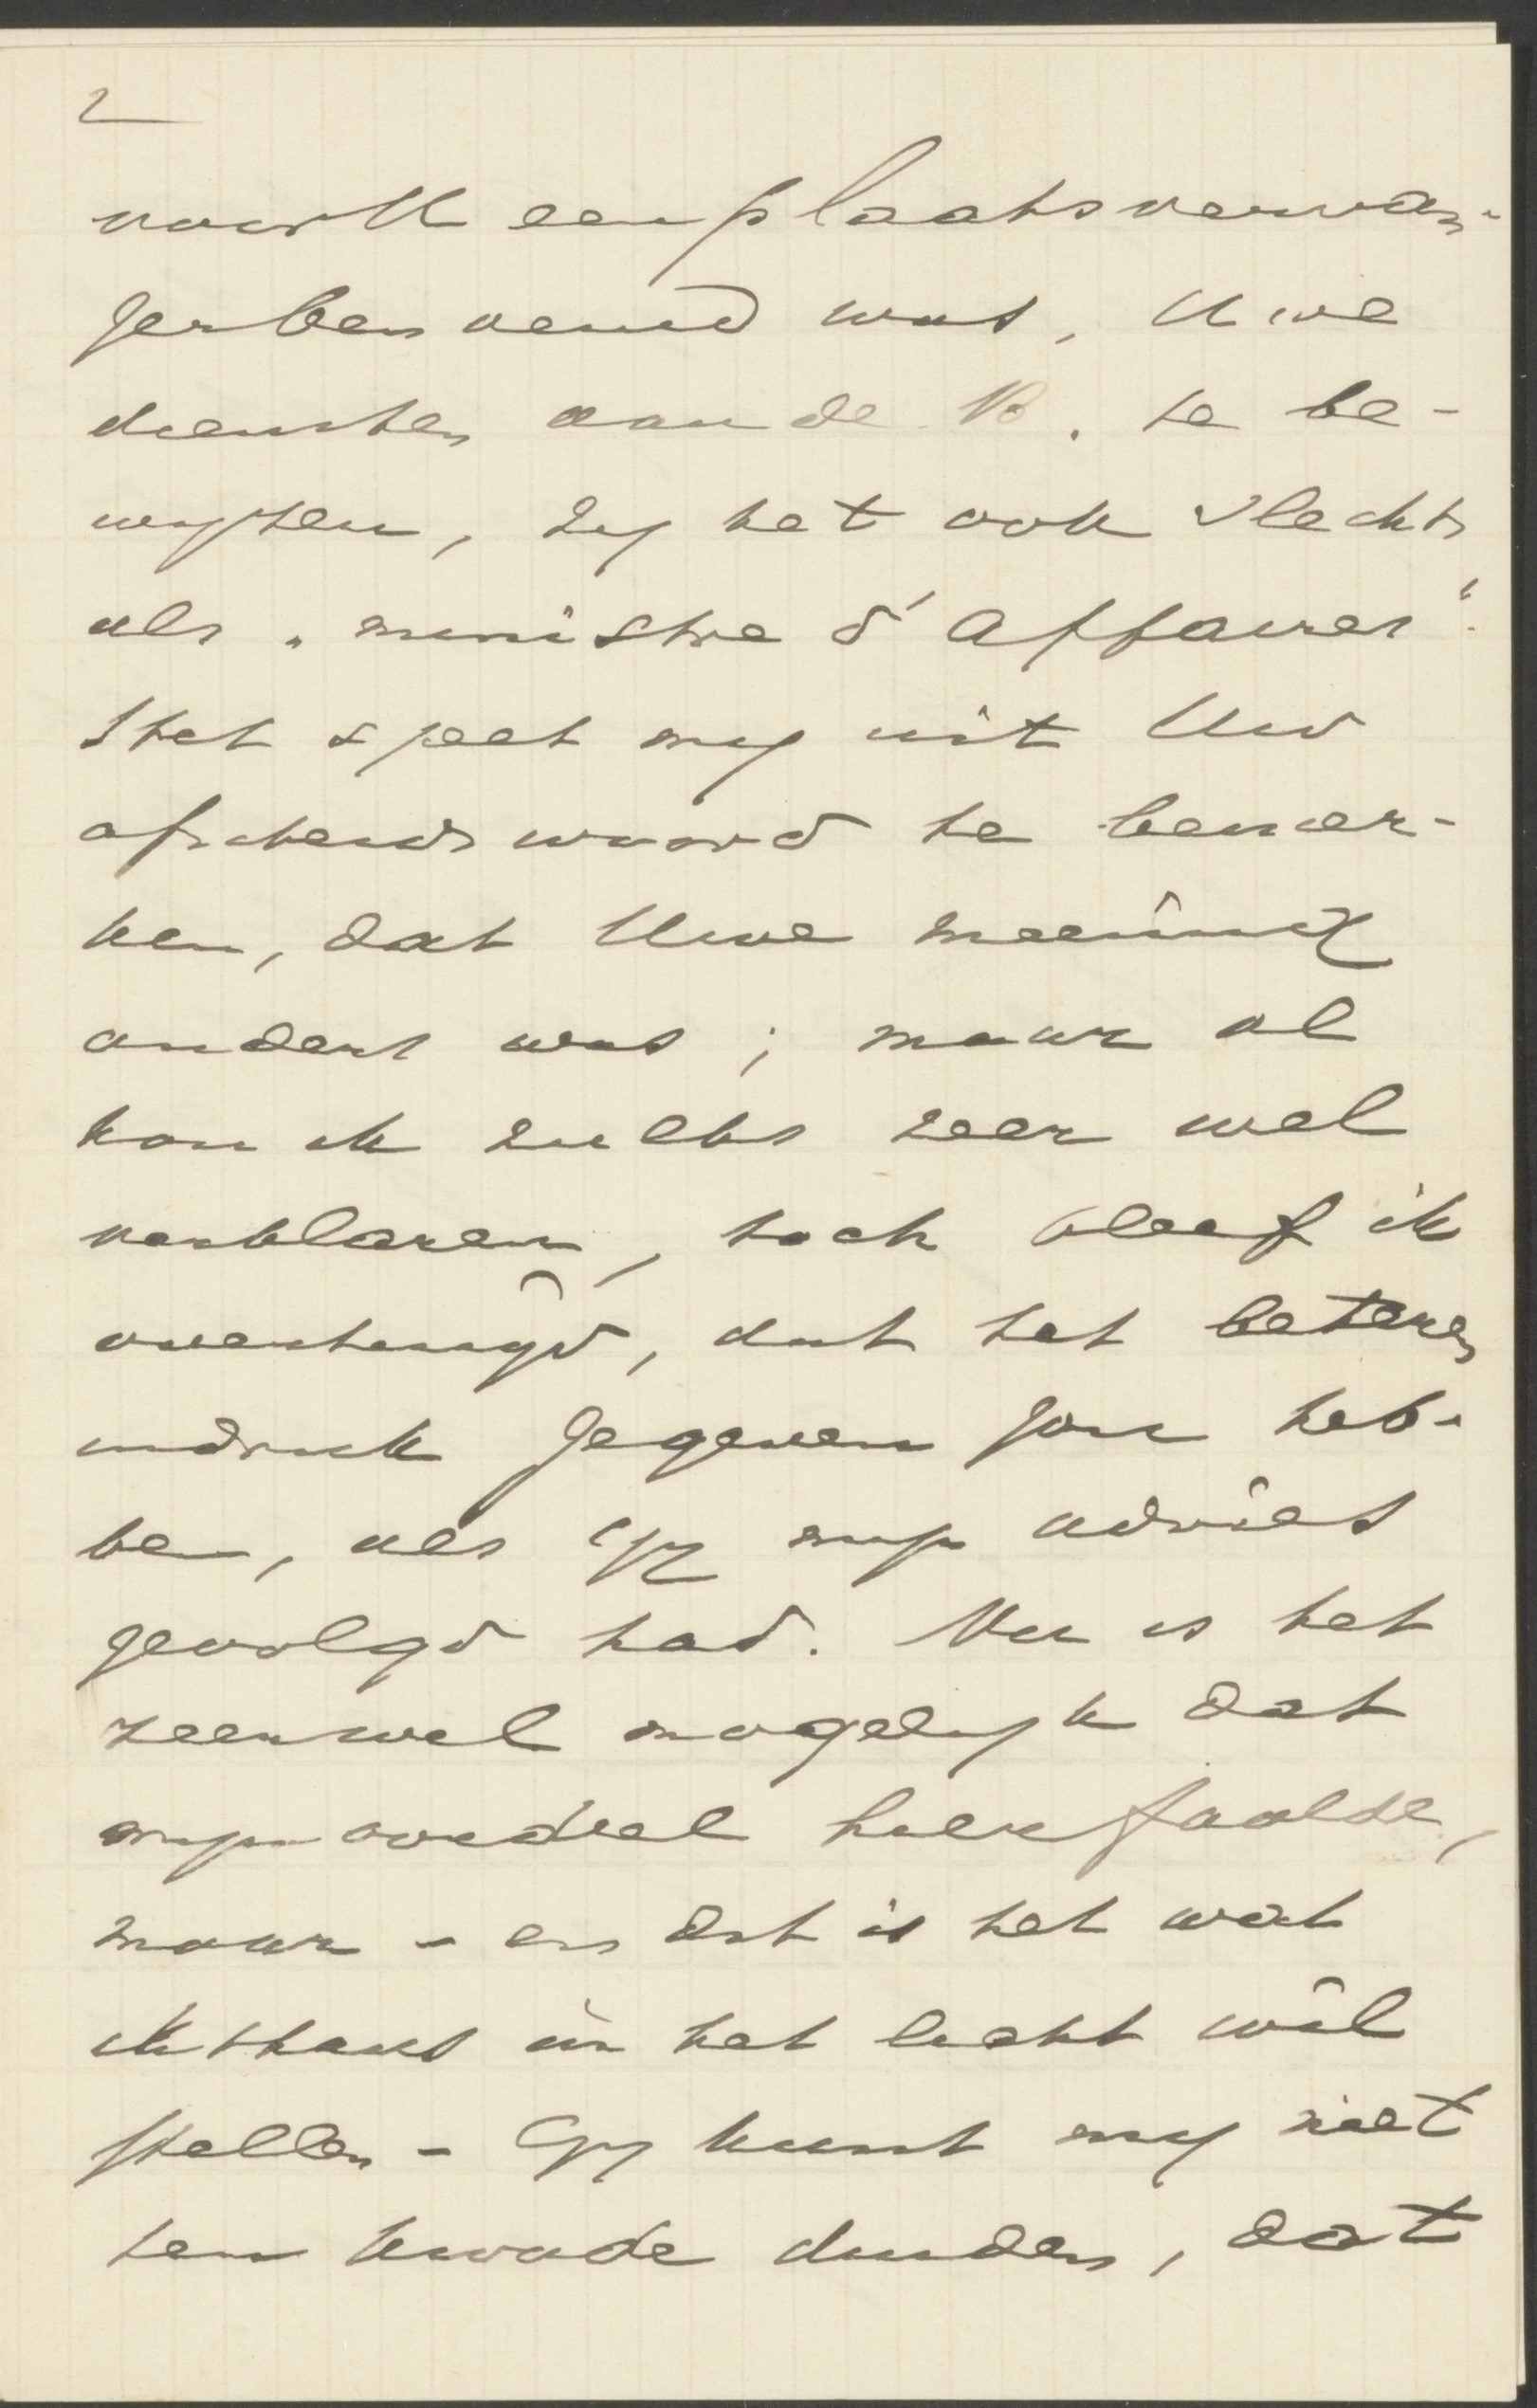 2
voor U een plaatsvervan-
ger benoemd was, Uwe
diensten aan de B. te be-
wijzen, zij het ook slechts
als "ministre d'affaires".
Het speet mij uit Uw
afscheidswoord te bemer-
ken, dat Uwe meening
anders was; maar al
kon ik zulks zeer wel
verklaren, toch bleef ik
overtuigd, dat het beteren
indruk gegeven zou heb-
ben, als Gij mijn advies
gevolgd had. Nu is het
zeer wel mogelijk dat
mijn oordeel hier faalde,
maar - en dat is het wat
ik thans in het licht wil
stellen - Gij kunt mij niet
ten kwade duiden, dat